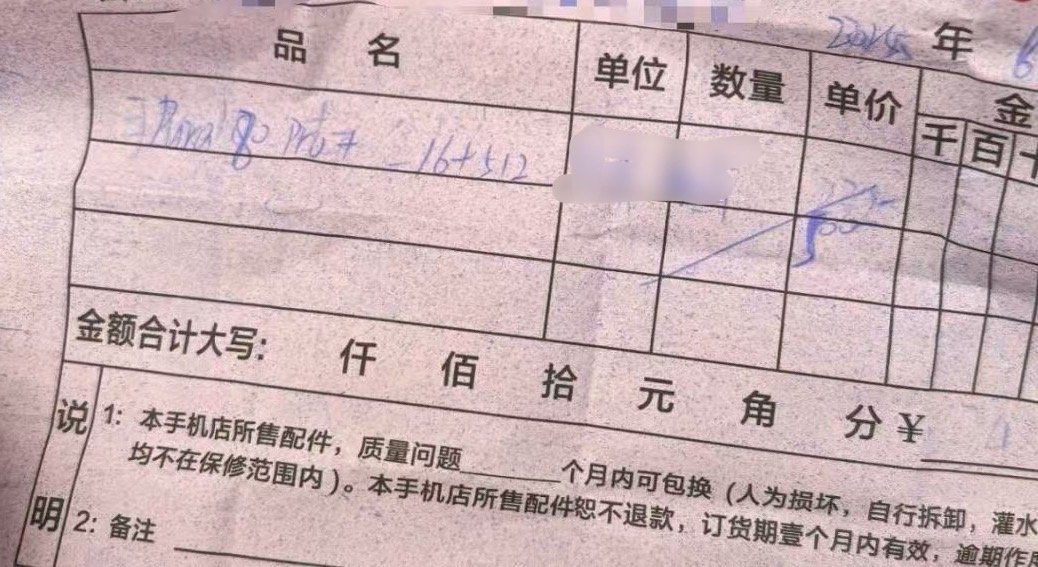 2024 年 6
品 名 单位 数量 单价 金
千 百 十
80 Pro+ - 16+512
500
金额合计大写： 仟 佰 拾 元 角 分 ￥
说明
1：本手机店所售配件，质量问题______个月内可包换（人为损坏，自行拆卸，灌水
均不在保修范围内）。本手机店所售配件恕不退款，订货期壹个月内有效，逾期作
2：备注